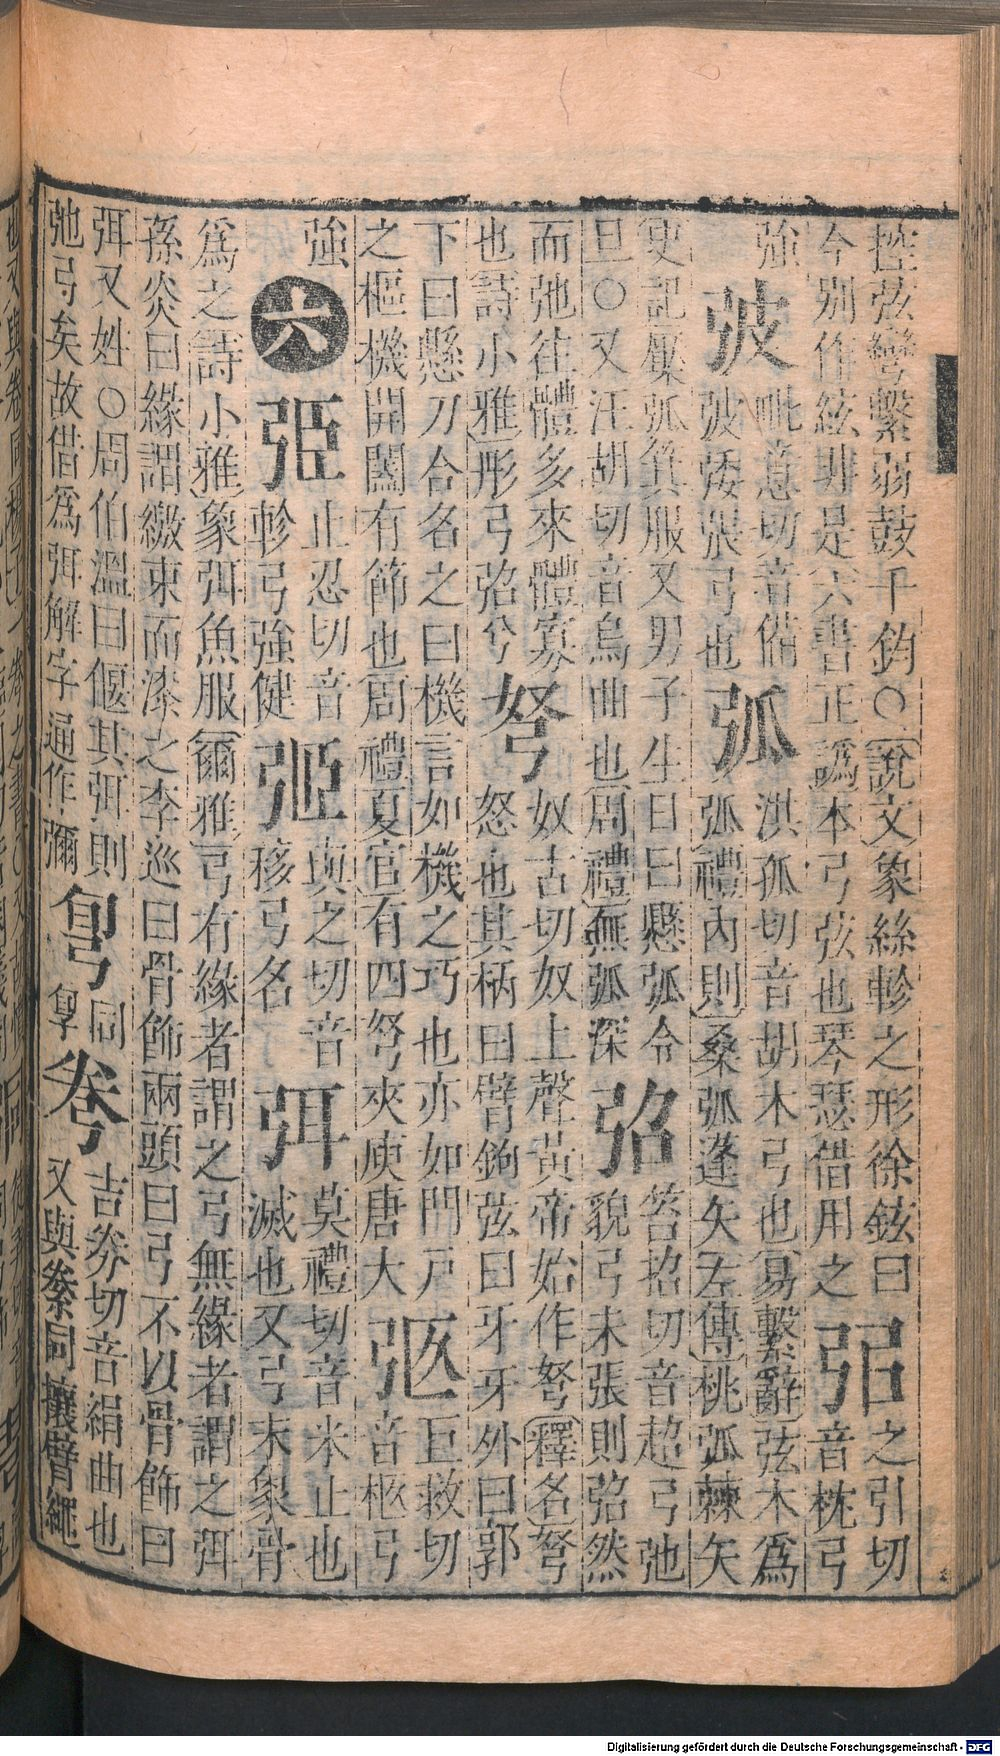 控弦彎繫弱鼓千鈞○說文象絲軫之形徐鉉曰
今別作絃非是六書正譌本弓弦也琴瑟借用之
之引切
音枕弓
強
毗意切音備
矮張弓也
弧
洪孤切音胡木弓也易繫辭弦木為
弧禮內則桑弧蓬矢左傳桃弧棘矢
史記檿弧箕服又男子生日曰懸弧令
旦○又汪胡切音烏曲也周禮無弧深
弨
笤招切音超弓弛
貌弓未張則弨然
而弛往體多來體寡
也詩小雅彤弓弨兮
弩
奴古切奴上聲黃帝始作弩釋名弩
怒也其柄曰臂鉤弦曰牙牙外曰郭
下曰懸刀合名之曰機言如機之巧也亦如門戶
之樞機開闔有節也周禮夏官有四弩夾庾唐大
巨救切
音柩弓
強
六
弫
止忍切音
軫弓強健
弬
與之切音
移弓名
弭
莫禮切音米止也
滅也又弓末象骨
爲之詩小雅象弭魚服爾雅弓有緣者謂之弓無緣者謂之弭
孫炎曰緣謂繳束而漆之李巡曰骨飾兩頭曰弓不以骨飾曰
弭又姓○周伯溫曰偃其弭則
弛弓矣故借爲弭解字通作彌
同
弮
吉券切音絹曲也
又與絭同攘臂繩
Digitalisierung gefördert durch die Deutsche Forschungsgemeinschaft - DFG